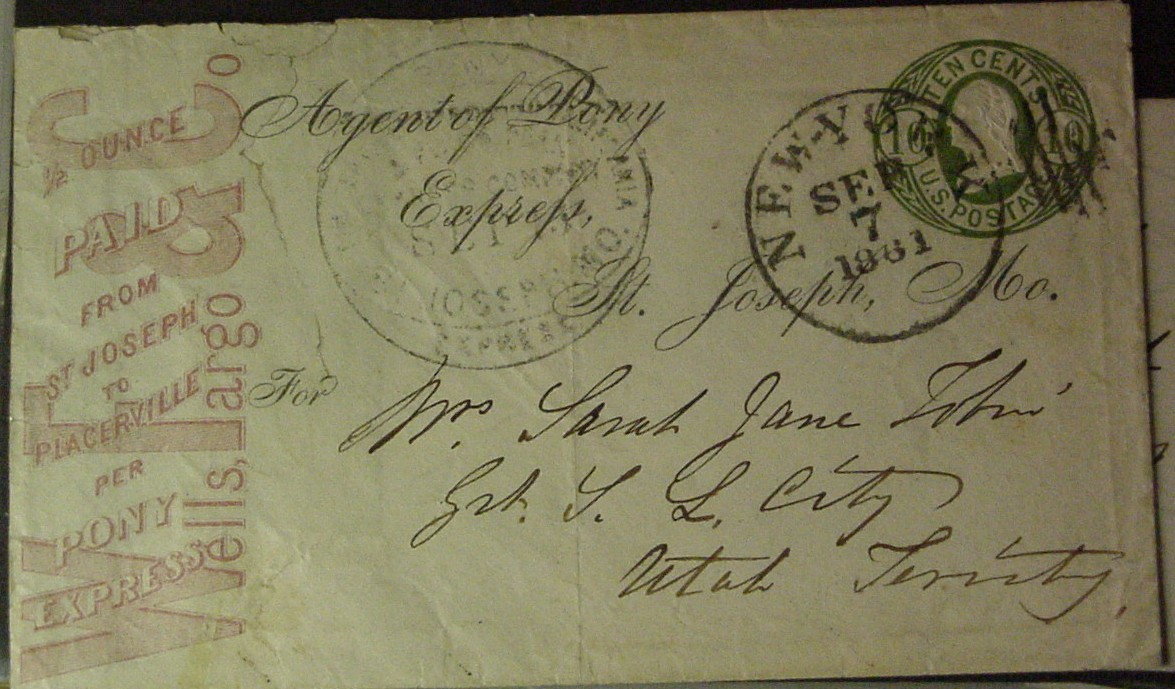 ½ OUNCE
PAID
FROM
ST JOSEPH
TO
PLACERVILLE
PER
PONY
EXPRESS
Wells, Fargo & Co
Agent of Pony
Express,
St. Joseph, Mo.
For
Mrs. Sarah Jane
Grt. S. L. City
Utah
TEN CENTS
10 10
U.S. POSTAGE
NEW-YO
SEP
7
1861
ST JOSEPH MO.
EXPRESS